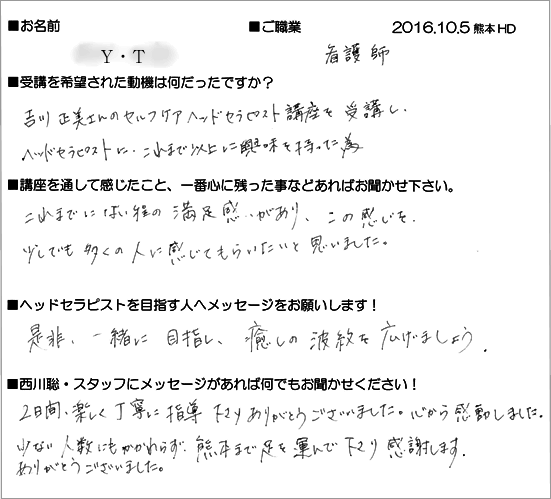 ■お名前 ■ご職業 2016.10.5 熊本HD
Y・T 看護師
■受講を希望された動機は何だったですか？
吉川 正美さんのセルフケアヘッドセラピスト講座を 受講し、
ヘッドセラピストに、これまで以上に興味を持った為
■講座を通して感じたこと、一番心に残った事などあればお聞かせ下さい。
これまでにない程の 満足感がありり、この感じを、
少しでも 多くの人に感じてもらいたいと思いました。
■ヘッドセラピストを目指す人へメッセージをお願いします！
是非、一緒に 目指し、癒しの 波紋を 広げましょう.
■西川聡・スタッフにメッセージがあれば何でもお聞かせください！
2日間、楽しく 丁寧に 指導 下さり ありがとうございました。心から 感動しました。
少ない 人数にもかかわらず、熊本まで 足を 運んで 下さり 感謝します.
ありがとうございました。